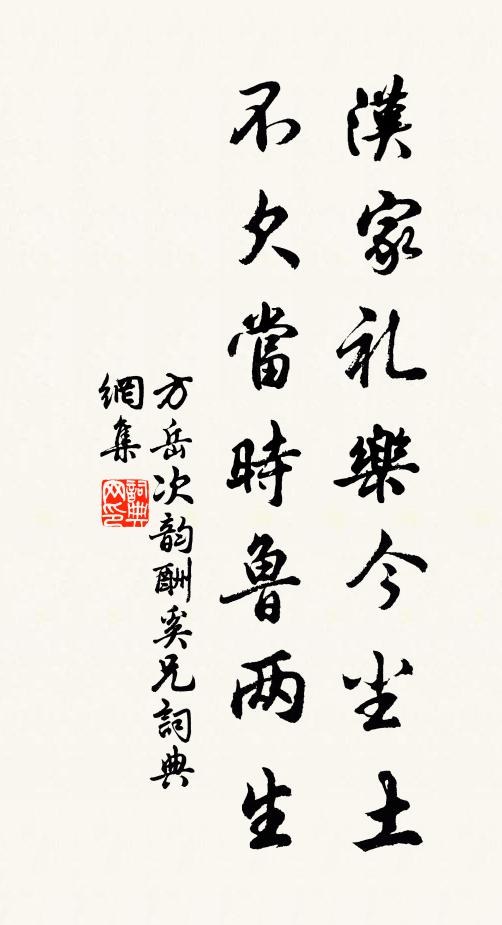 漢家礼樂今尘土
不欠當時魯两生
方岳次韵酬奚兄詞典
網集
詞典
网印